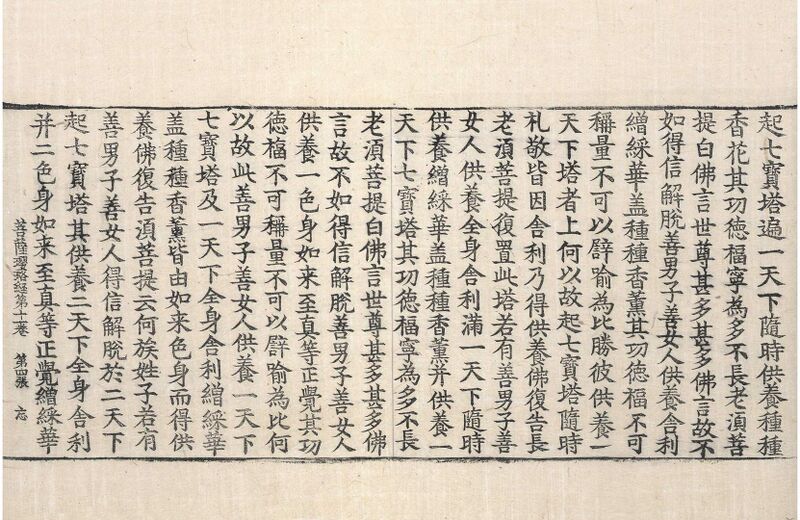 起七寶塔遍一天下隨時供養種種
香花其功德福寧為多不長老湏菩
提白佛言世尊甚多甚多佛言故不
如得信解脫善男子善女人供養舍利
繒綵華盖種種香薰其功德福不可
稱量不可以譬喻為比勝彼供養一
天下塔者上何以故起七寶塔隨時
礼敬皆因舍利乃得供養佛復告長
老湏菩提復置此塔若有善男子善
女人供養全身舍利滿一天下隨時
供養繒綵華盖種種香薰并供養一
天下七寶塔其功德福寧為多不長
老湏菩提白佛言世尊甚多甚多佛
言故不如得信解脫善男子善女人
供養一色身如来至真等正覺其功
德福不可稱量不可以譬喻為比何
以故此善男子善女人供養一天下
七寶塔及一天下全身舍利繒綵華
盖種種香薰皆由如来色身而得供
養佛復告湏菩提云何族姓子若有
善男子善女人得信解脫於二天下
起七寶塔其供養二天下全身舍利
菩薩瓔珞経第十一卷 第四張 忘
并二色身如来至真等正覺繒綵華